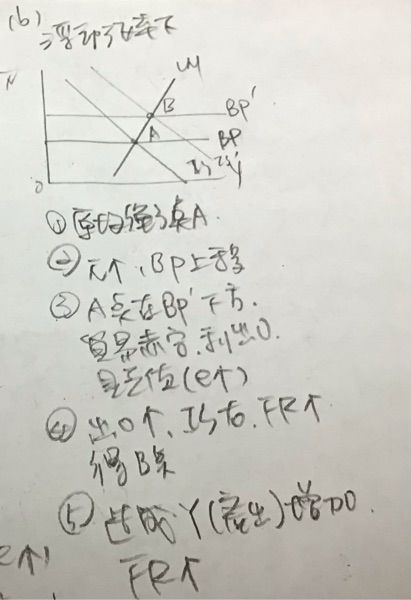 (b)
浮动汇率下
LM
B
BP'
A
BP
IS IS'
Y
0
① 原均衡点A.
② r*↑, BP上移
③ A点在BP'下方.
贸易赤字, 利出口.
易贬值(e↑)
④ 出口↑, IS右, FR↑
得B点
⑤ 造成Y(产出)增加.
FR↑
e↑)